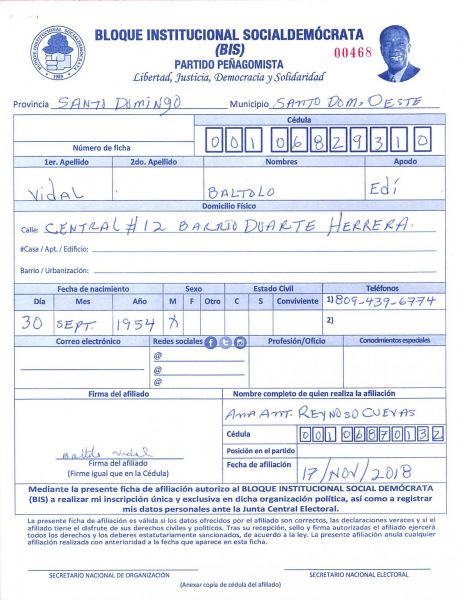 BLOQUE INSTITUCIONAL SOCIALDEMÓCRATA
(BIS)
00468
PARTIDO PEÑAGOMISTA
Libertad, Justicia, Democracia y Solidaridad
BLOQUE INSTITUCIONAL SOCIALDEMOCRATA
1989
Provincia SANTO DOMINGO Municipio SANTO DOM. OESTE
Cédula
Número de ficha 00106829310
1er. Apellido 2do. Apellido Nombres Apodo
Vidal BALTOLO Edí
Domicilio Físico
Calle: CENTRAL #12 BARRIO DUARTE HERRERA.
#Casa / Apt. / Edificio:
Barrio / Urbanización:
Fecha de nacimiento Sexo Estado Civil Teléfonos
Día Mes Año M F Otro C S Conviviente 1) 809-439-6774
30 SEPT. 1954 X 2)
Correo electrónico Redes sociales Profesión/Oficio Conocimientos especiales
@
@
@
Firma del afiliado Nombre completo de quien realiza la afiliación
ANA ANT. REYNOSO CUEVAS
Cédula 00106870132
Baltolo Vidal
Posición en el partido
Firma del afiliado
(Firme igual que en la Cédula)
Fecha de afiliación 17/NOV/2018
Mediante la presente ficha de afiliación autorizo al BLOQUE INSTITUCIONAL SOCIAL DEMÓCRATA
(BIS) a realizar mi inscripción única y exclusiva en dicha organización política, así como a registrar
mis datos personales ante la Junta Central Electoral.
La presente ficha de afiliación es válida si los datos ofrecidos por el afiliado son correctos, las declaraciones veraces y si el
afiliado tiene el disfrute de sus derechos civiles y políticos. Tras su recepción, sello y firma autorizados el afiliado ejercerá
todos los derechos y los deberes estatutariamente sancionados, de acuerdo a la ley. La presente afiliación anula cualquier
afiliación realizada con anterioridad a la fecha que aparece en esta ficha.
SECRETARIO NACIONAL DE ORGANIZACIÓN SECRETARIO NACIONAL ELECTORAL
(Anexar copia de cédula del afiliado)